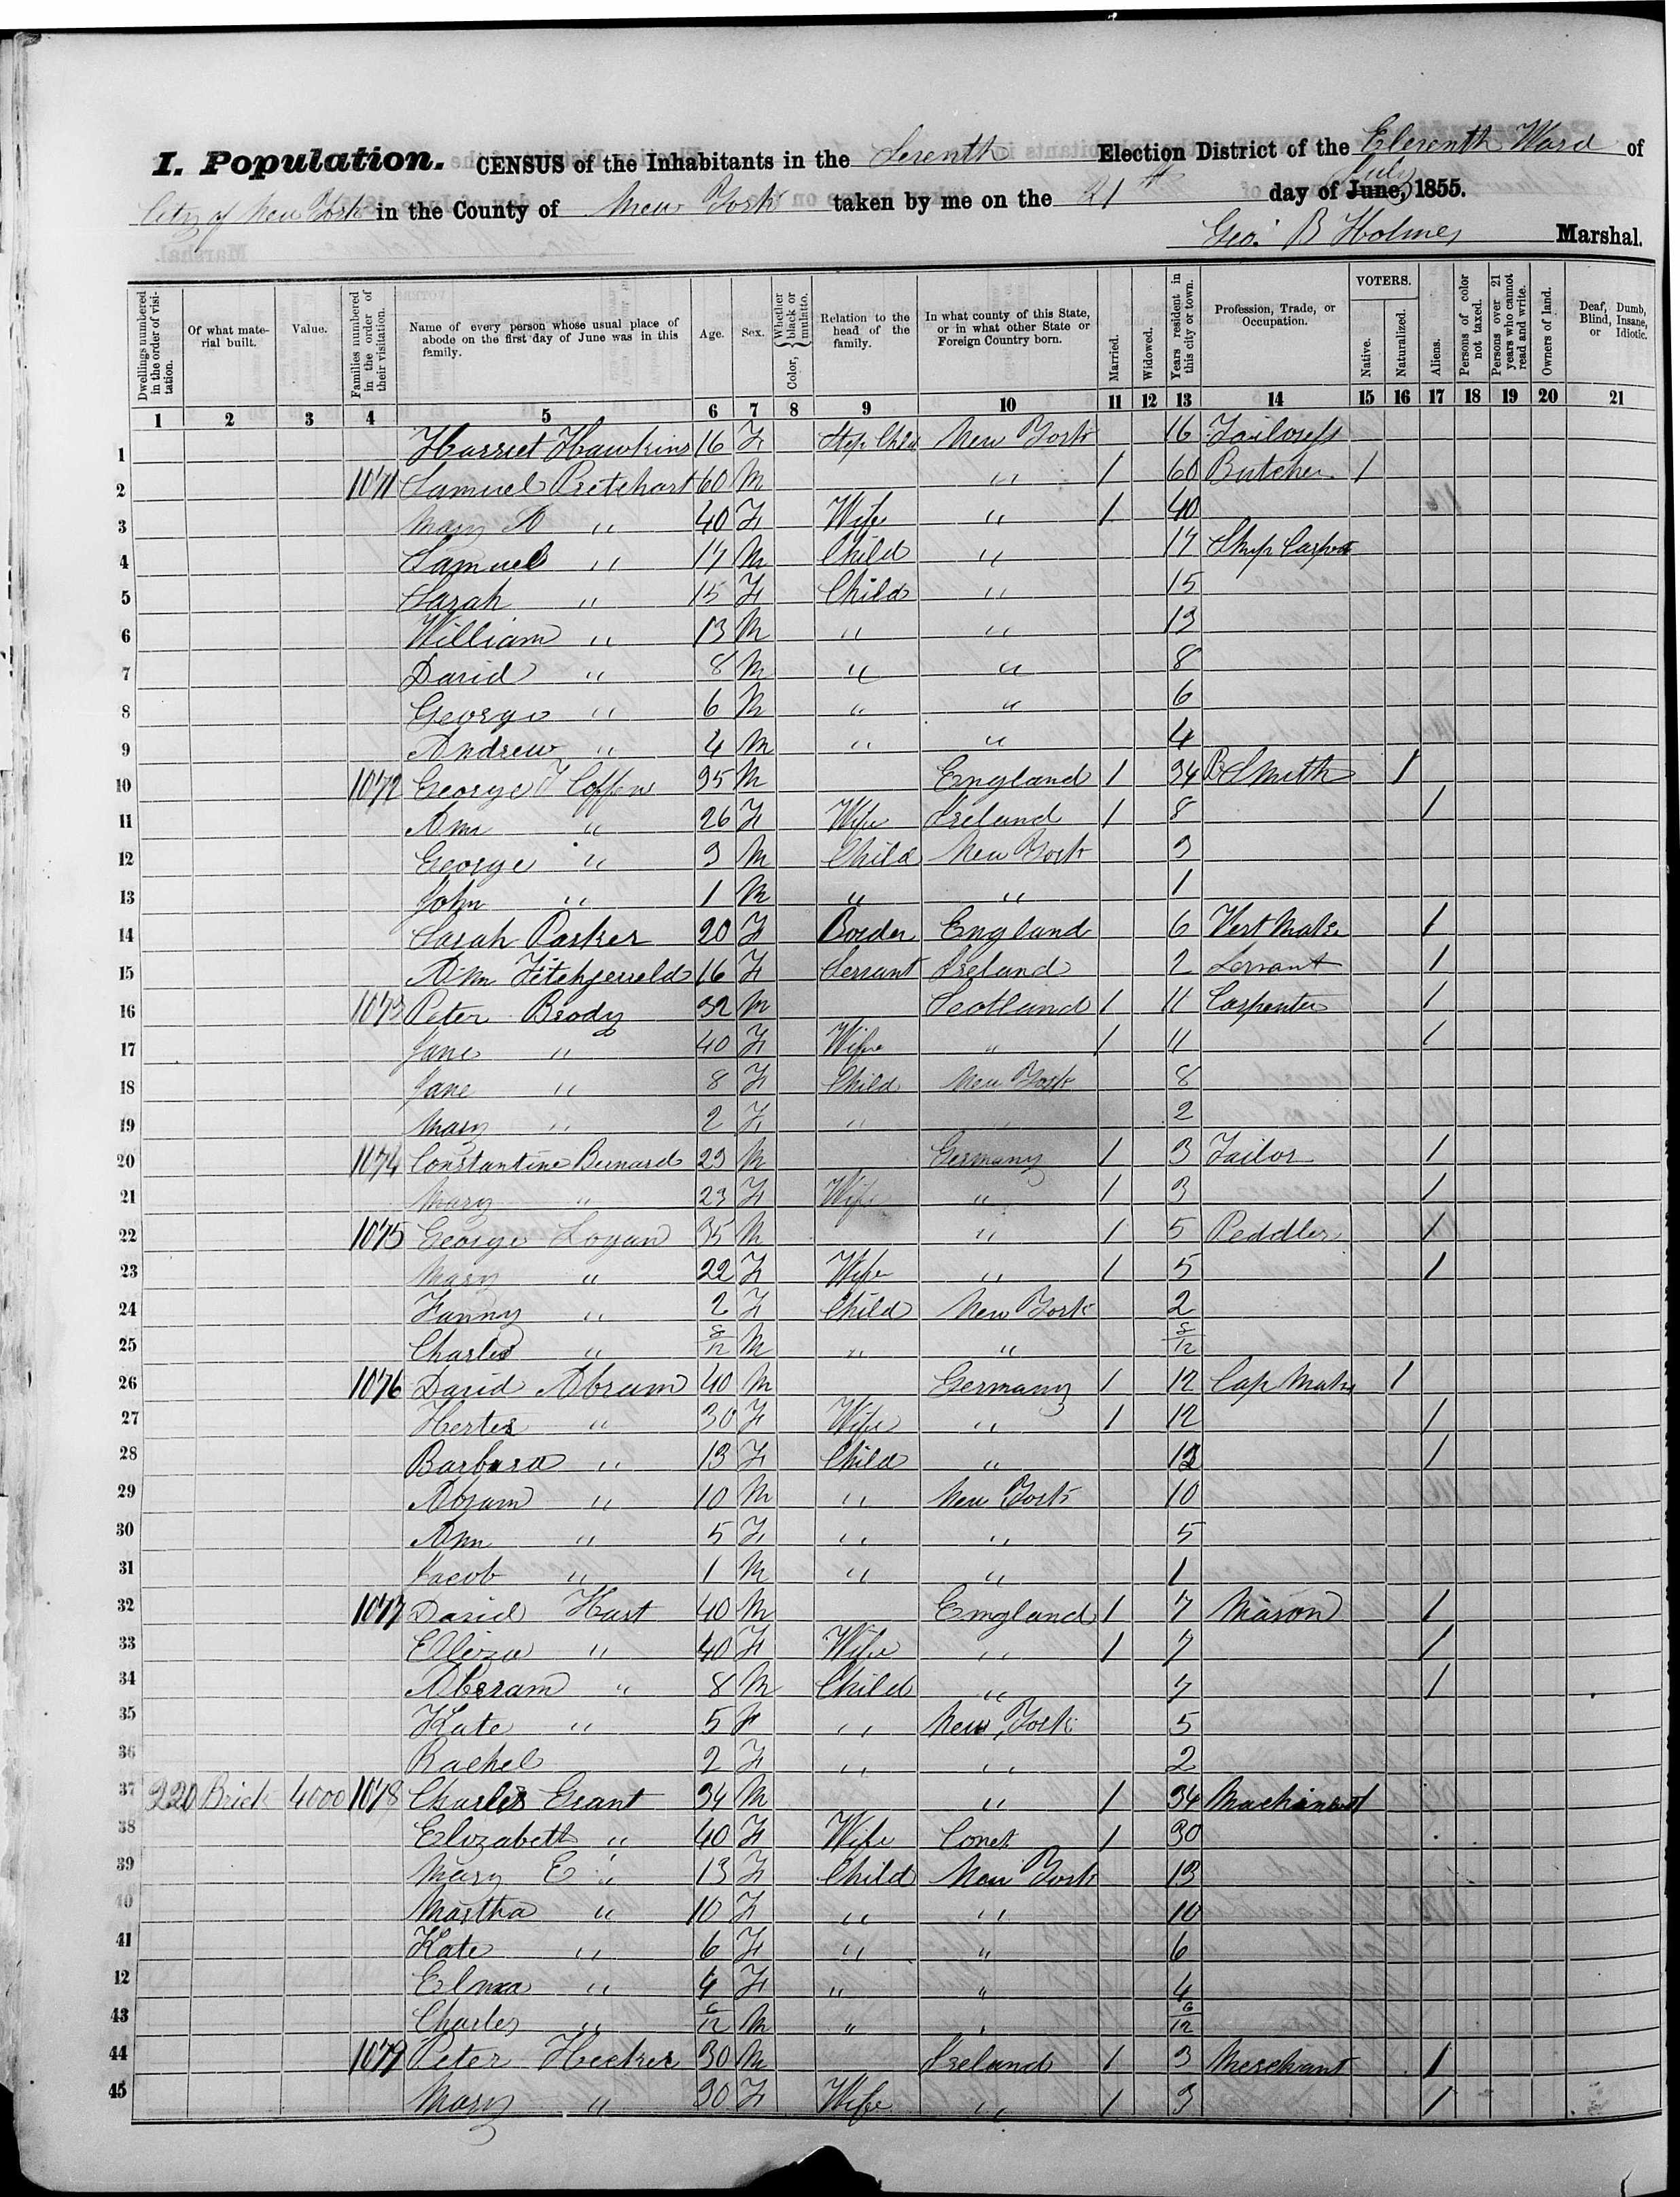 I. Population. CENSUS of the Inhabitants in the Seventh Election District of the Eleventh Ward of
City of New York in the County of New York taken by me on the 21st day of June, July 1855.
Geo. B Holmes Marshal.
Dwellings numbered in the order of visitation. Of what material built. Value. Families numbered in the order of their visitation. Name of every person whose usual place of abode on the first day of June was in this family. Age. Sex. Color, Whether black or mulatto. Relation to the head of the family. In what county of this State, or in what other State or Foreign Country born. Married. Widowed. Years resident in this city or town. Profession, Trade, or Occupation. VOTERS. Native. Naturalized. Aliens. Persons of color not taxed. Persons over 21 years who cannot read and write. Owners of land. Deaf, Dumb, Blind, Insane, or Idiotic.
1 2 3 4 5 6 7 8 9 10 11 12 13 14 15 16 17 18 19 20 21
1 Harriet Hawkins 16 F Step Child New York 16 Tailoress
2 1071 Samuel Pritchart 60 M " 1 60 Butcher 1
3 Mary A " 40 F Wife " 1 40
4 Samuel " 17 M Child " 17 Ship Carpet
5 Sarah " 15 F Child " 15
6 William " 13 M " " 13
7 David " 8 M " " 8
8 George " 6 M " " 6
9 Andrew " 4 M " " 4
10 1072 George F Coffen 35 M England 1 34 B Smith 1
11 Ann " 26 F Wife Ireland 1 8 1
12 George " 3 M Child New York 3
13 John " 1 M " " 1
14 Sarah Parker 20 F Border England 6 Vest Maker 1
15 Ann Fitchjerreld 16 F Servant Ireland 2 Servant 1
16 1073 Peter Brody 32 M Scotland 1 11 Carpenter 1
17 Jane " 40 F Wife " 1 11 1
18 Jane " 8 F Child New York 8
19 Mary " 2 F " " 2
20 1074 Constantine Bernard 23 M Germany 1 3 Tailor 1
21 Mary " 23 F Wife " 1 3 1
22 1075 George Logan 35 M " 1 5 Peddler 1
23 Mary " 22 F Wife " 1 5 1
24 Fanny " 2 F Child New York 2
25 Charles " 8/12 M " " 8/12
26 1076 David Abram 40 M Germany 1 12 Cap Maker 1
27 Herter " 30 F Wife " 1 12 1
28 Barbara " 13 F Child " 12 1
29 Abram " 10 M " New York 10
30 Ann " 5 F " " 5
31 Jacob " 1 M " " 1
32 1077 David Hart 40 M England 1 7 Mason 1
33 Eliza " 40 F Wife " 1 7 1
34 Abram " 8 M Child " 7 1
35 Kate " 5 F " New York 5
36 Rachel 2 F " " 2
37 220 Brick 4000 1078 Charles Grant 34 M " 1 34 Machinist 1
38 Elizabeth " 40 F Wife Conet 1 30
39 Mary E " 13 F Child New York 13
40 Martha " 10 F " " 10
41 Kate " 6 F " " 6
12 Elmxa " 4 F " " 4
43 Charles " 6/12 M " " 6/12
44 1079 Peter Hecker 30 M Ireland 1 3 Merchant 1
45 Mary " 30 F Wife " 1 3 1